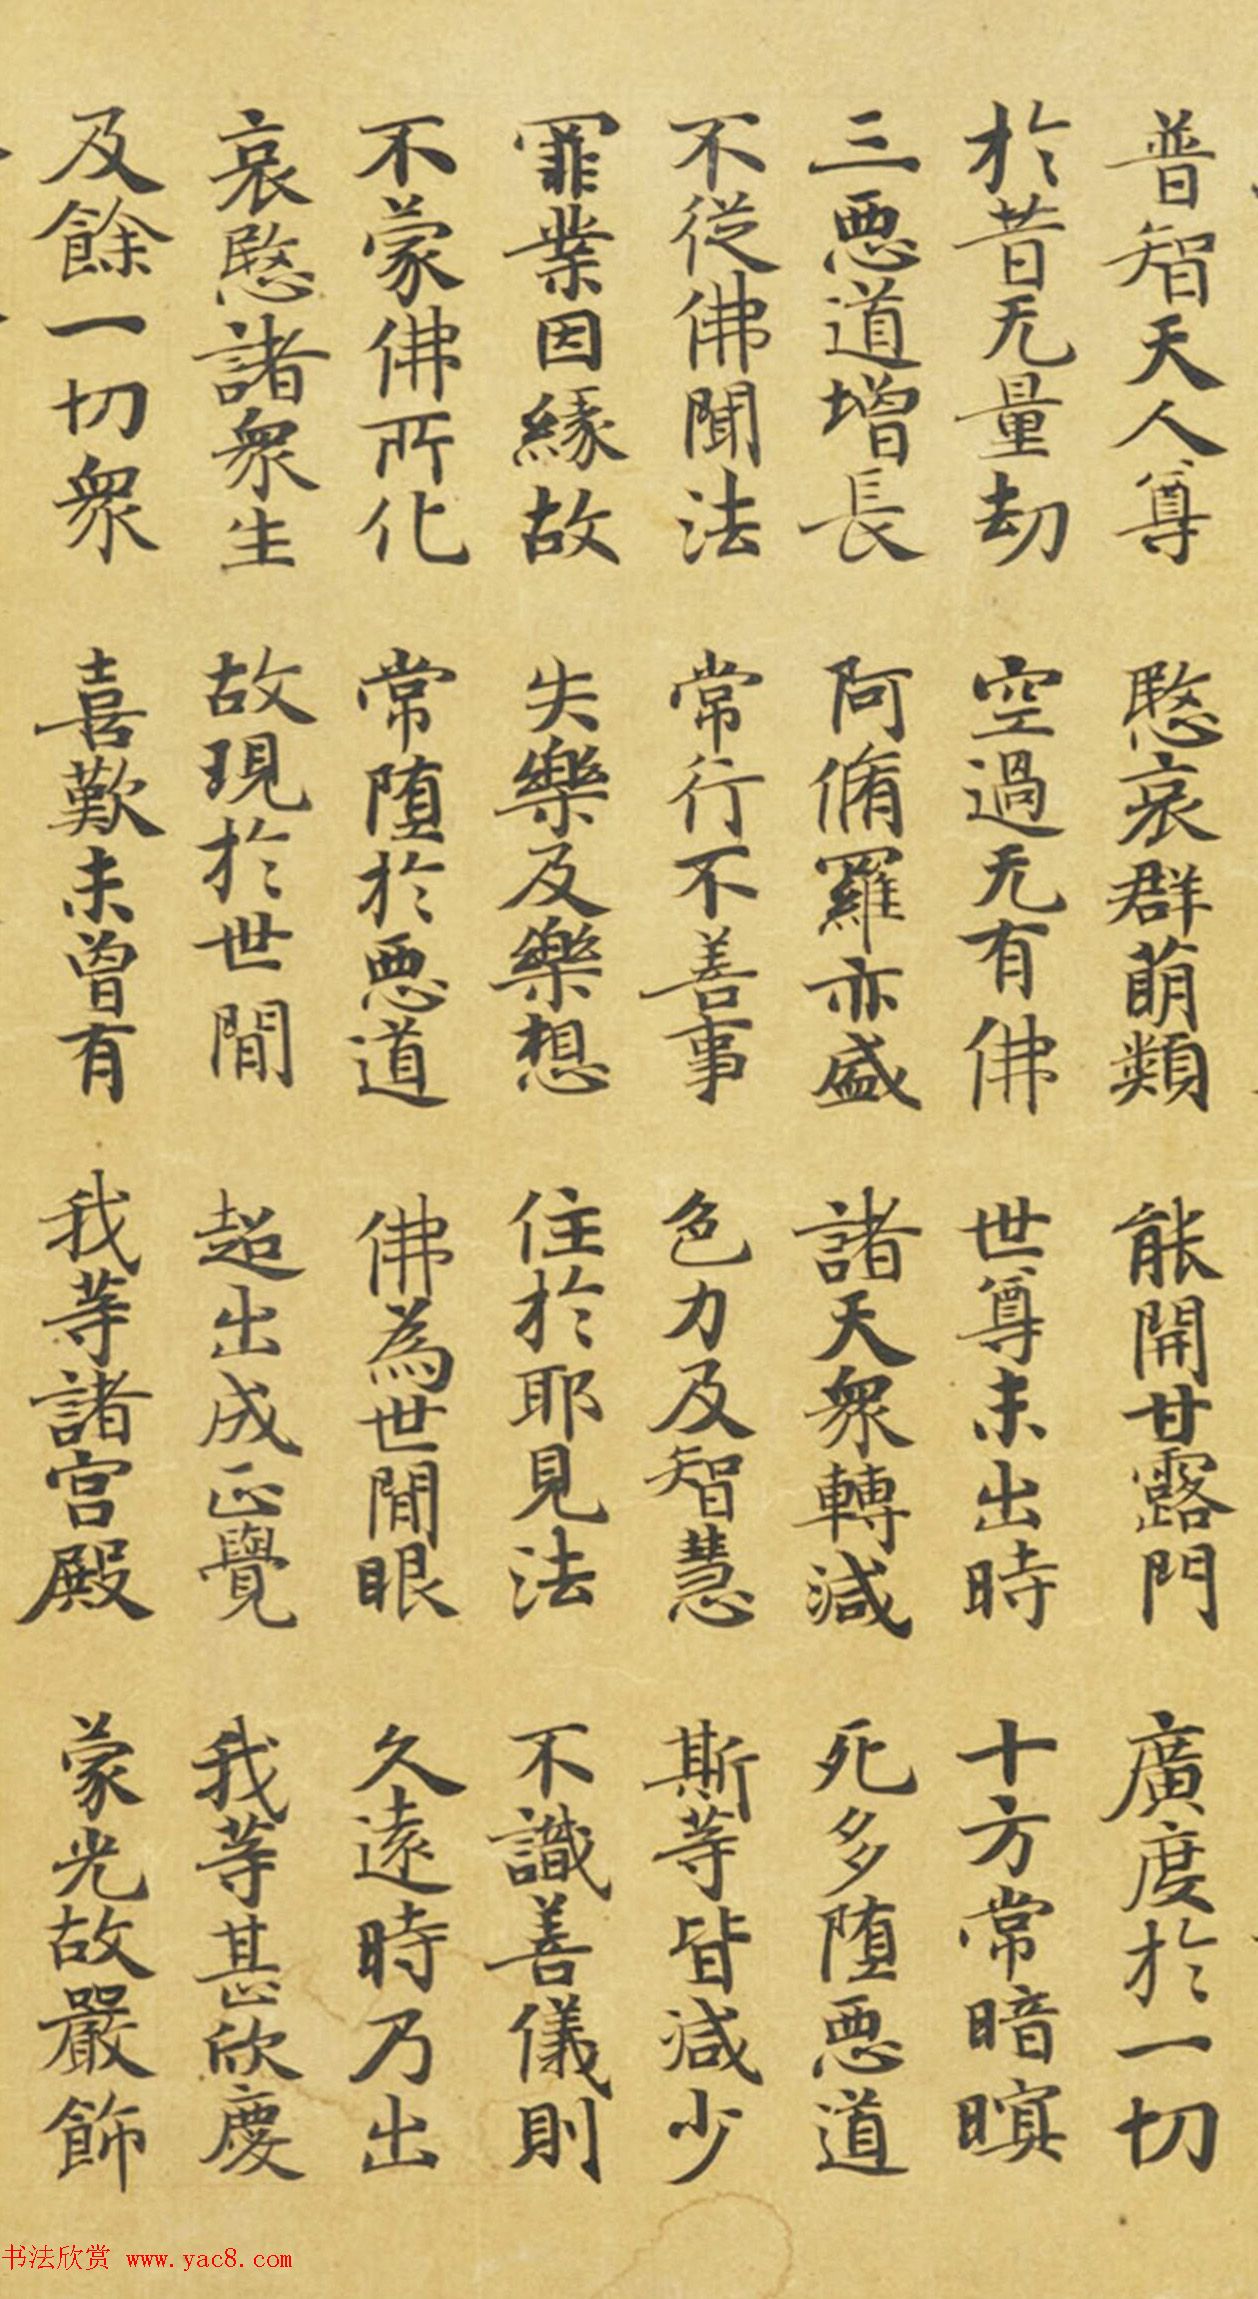 普智天人尊 愍哀群萌類 能開甘露門 廣度於一切
於昔无量劫 空過无有佛 世尊未出時 十方常暗暝
三惡道增長 阿脩羅亦盛 諸天衆轉減 死多墮惡道
不從佛聞法 常行不善事 色力及智慧 斯等皆減少
罪業因緣故 失樂及樂想 住於耶見法 不識善儀則
不蒙佛所化 常墮於惡道 佛為世間眼 久遠時乃出
哀愍諸衆生 故現於世間 超出成正覺 我等甚欣慶
及餘一切衆 喜歎未曾有 我等諸宮殿 蒙光故嚴飾
书法欣赏 www.yac8.com